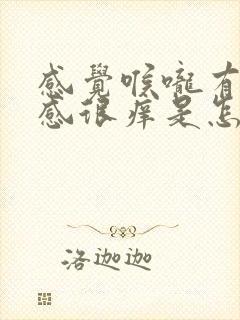 感覺喉嚨有
感很痒是怎
洛迦迦